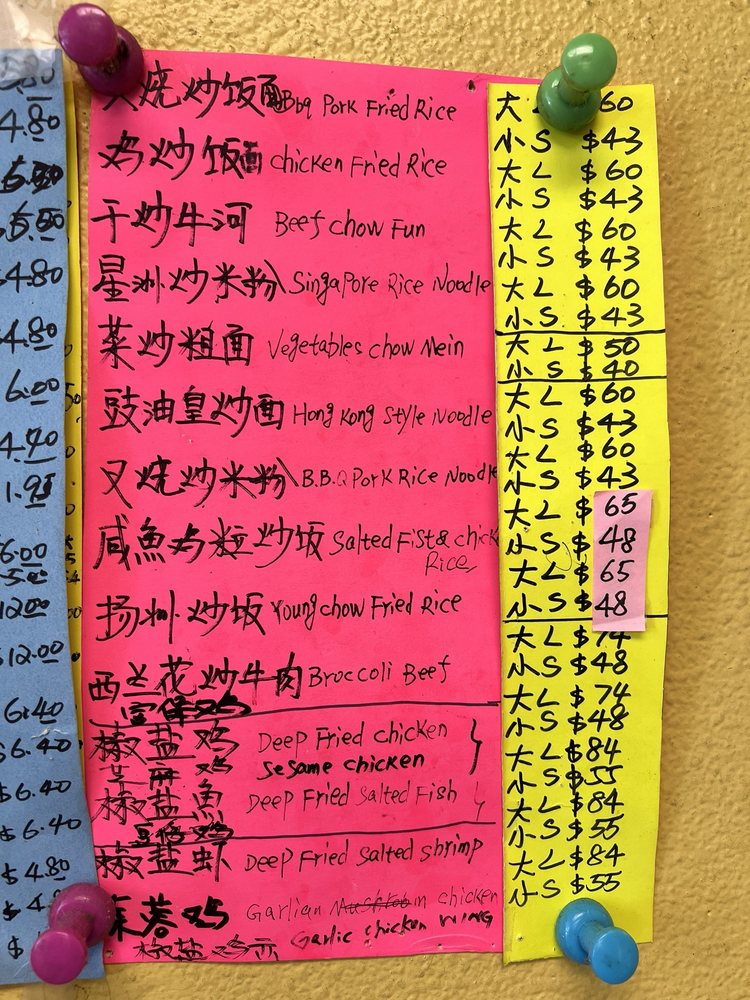 4.80
叉烧炒饭面 Bbq Pork Fried Rice 大 L $60
小 S $43
鸡炒饭面 chicken Fried Rice 大 L $60
小 S $43
干炒牛河 Beef chow Fun 大 L $60
小 S $43
4.80
星洲炒米粉 Singapore Rice Noodle 大 L $60
小 S $43
4.80
菜炒粗面 Vegetables chow Mein 大 L $50
小 S $40
6.00
豉油皇炒面 Hong Kong Style Noodle 大 L $60
小 S $43
4.40
叉烧炒米粉 B.B.Q Pork Rice Noodle 大 L $60
小 S $43
1.95
咸魚鸡粒炒饭 Salted Fist & chick 大 L $65
Rice 小 S $48
6.00
扬州炒饭 Young chow Fried Rice 大 L $65
小 S $48
12.00
西兰花炒牛肉 Broccoli Beef 大 L $74
小 S $48
$12.00
宫保鸡
椒盐鸡 Deep Fried chicken 大 L $74
小 S $48
6.40
芝麻鸡 Sesame chicken
$6.40
椒盐魚 Deep Fried Salted Fish 大 L $84
小 S $55
$6.40
椒盐虾 Deep Fried Salted shrimp 大 L $84
小 S $55
$6.40
$4.80
蒜蓉鸡 Garlian chicken 大 L $84
小 S $55
椒盐鸡 Garlic chicken WING